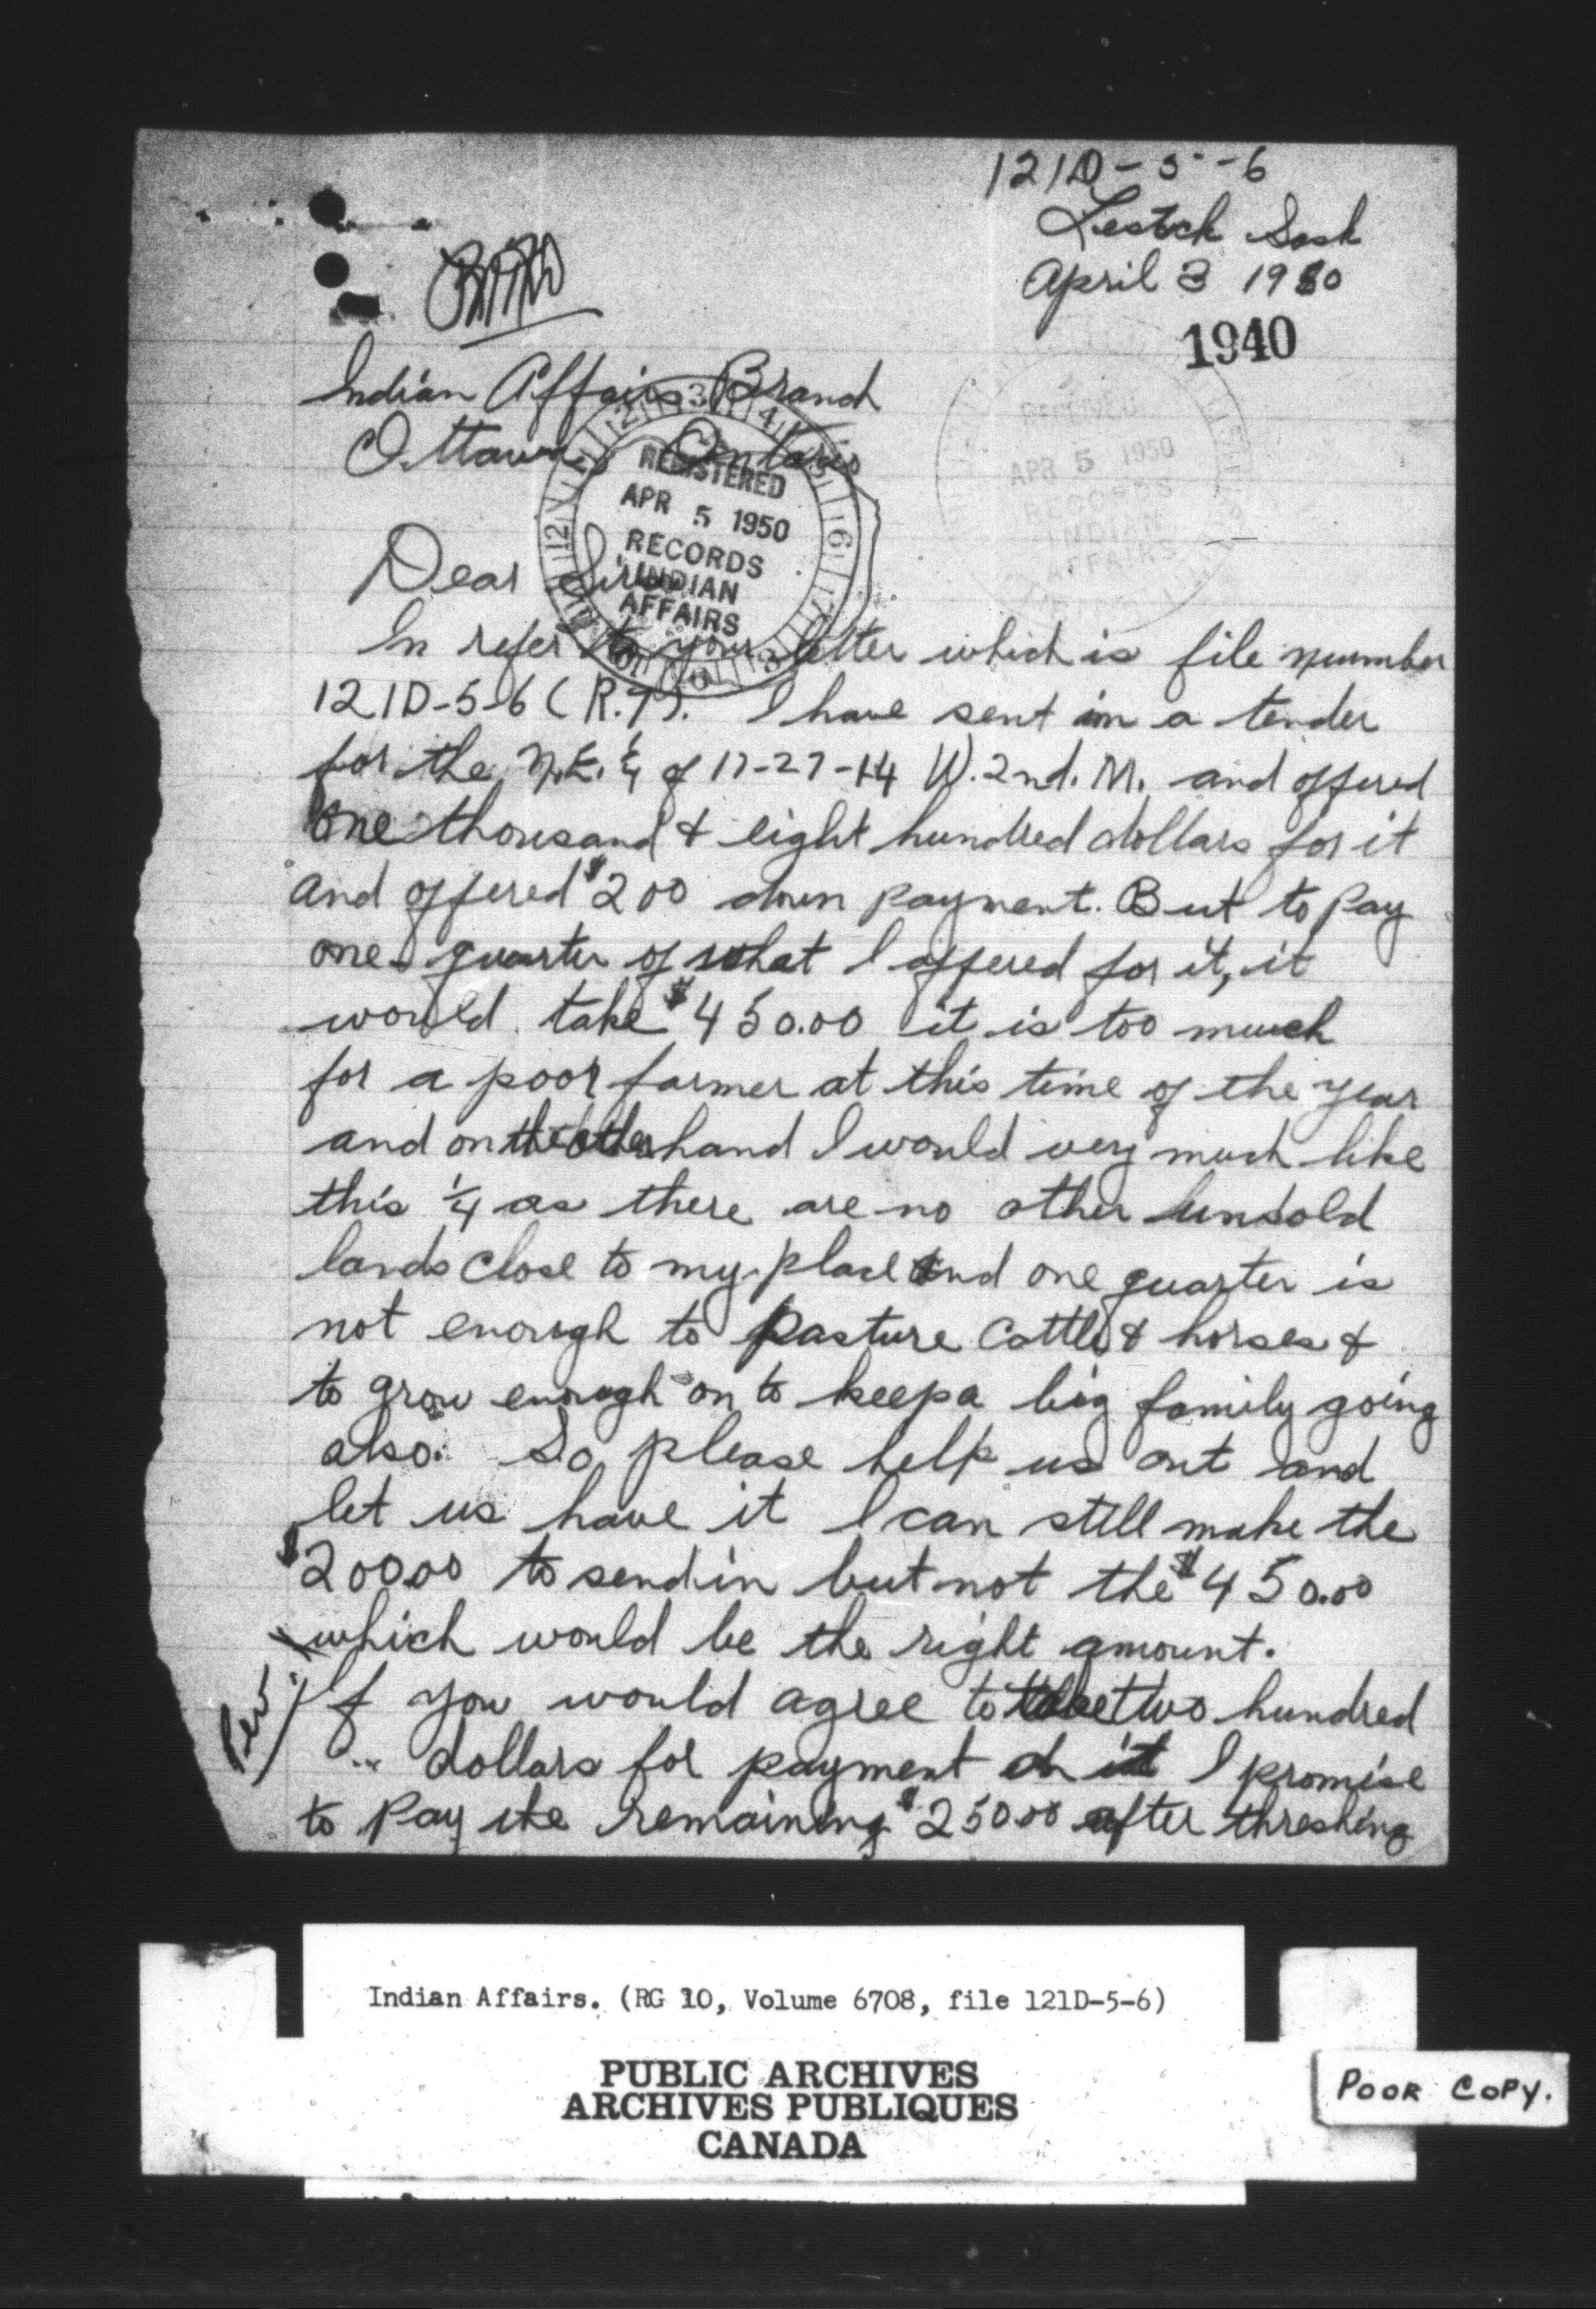 121D-5-6
Lestock Sask
April 3 1950
1940
Indian Affairs Branch
Ottawa, Ontario
REGISTERED
APR 5 1950
RECORDS
INDIAN
AFFAIRS
RECEIVED
APR 5 1950
RECORDS
INDIAN
AFFAIRS
Dear Sirs
In refer to your letter which is file nuumber
121D-5-6 (R.7). I have sent in a tender
for the N.E. ¼ of 17-27-14 W. 2nd. M. and offered
one thousand & eight hundred dollars for it
and offered $200 down payment. But to pay
one quarter of what I offered for it, it
would take $450.00 it is too much
for a poor farmer at this time of the year
and on the other hand I would very much like
this ¼ as there are no other unsold
lands close to my place and one quarter is
not enough to pasture cattle & horses &
to grow enough on to keep a big family going
also. So please help us out and
let us have it I can still make the
$200.00 to send in but not the $450.00
which would be the right amount.
If you would agree to take two hundred
dollars for payment on it I promise
to pay the remaining $250.00 after threshing
Indian Affairs. (RG 10, Volume 6708, file 121D-5-6)
PUBLIC ARCHIVES
ARCHIVES PUBLIQUES
CANADA
POOR COPY.